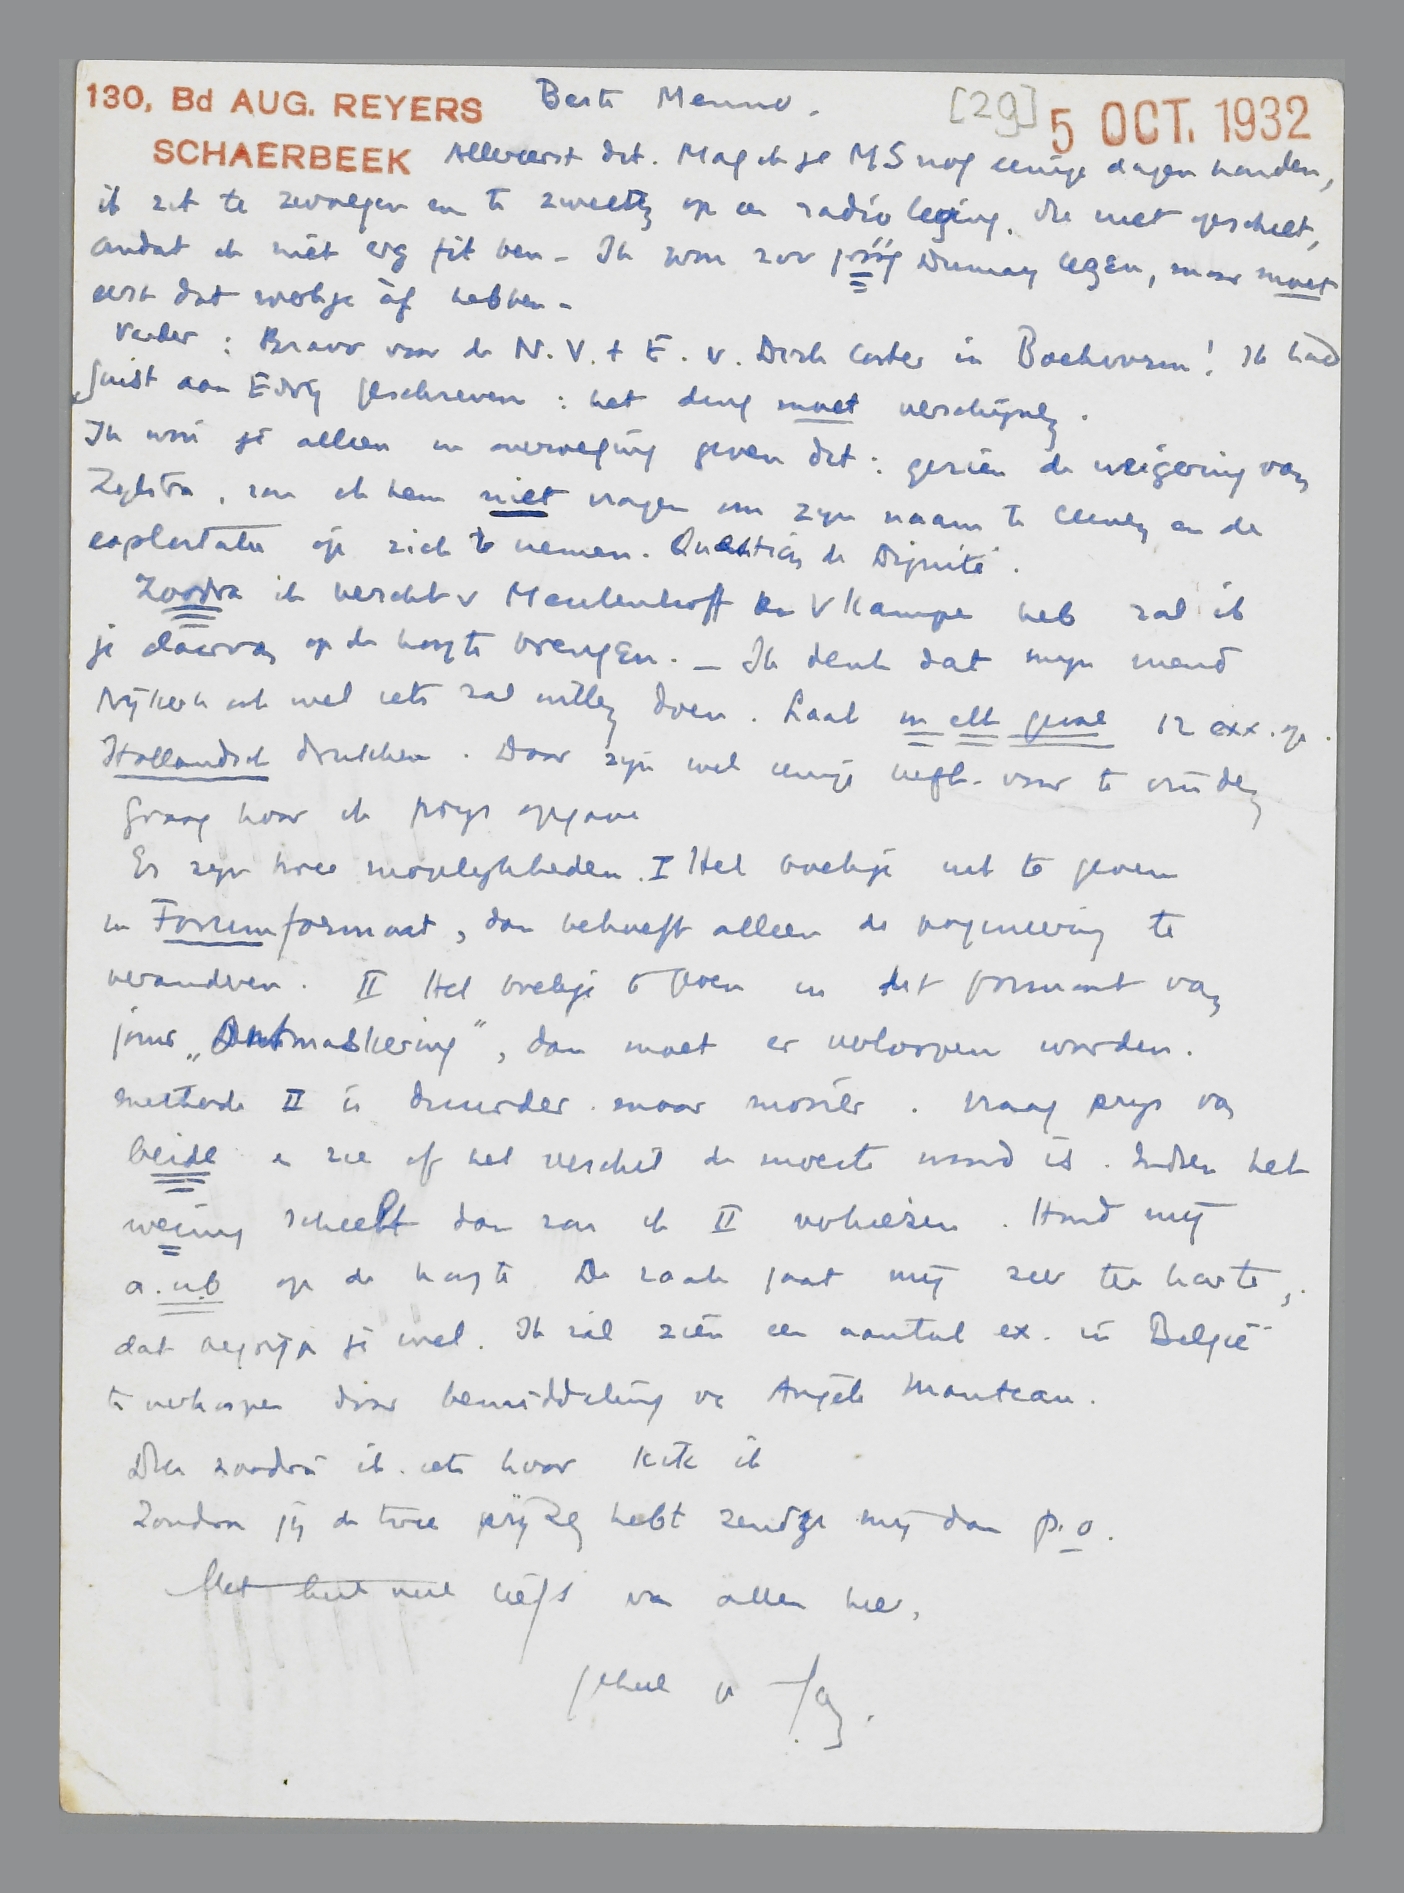 130, Bd AUG. REYERS
SCHAERBEEK
5 OCT. 1932
[29]
Beste Menno.
Allereerst dit. Mag ik je MS nog eenige dagen houden,
ik zit te zwoegen en te zweeten op een radio lezing, die niet opschiet,
omdat ik niet erg fit ben – Ik wou zoo Dumay lezen, maar moet
eerst dat werkje àf hebben –
Verder: Bravo voor de N.V. + E. v. Dirk Coster in Boekvorm! Ik had
juist aan Eddy geschreven: het ding moet verschijnen.
Ik wou je alleen in overweging geven dit: gezien de weigering van
Zijlstra, zou ik hem niet vragen om zijn naam te leenen en de
exploitatie op zich te nemen. Question de Dignité.
Zoodra ik bericht v Meulenhoff en V Kampen heb zal ik
je daarvan op de hoogte brengen. – Ik denk dat mijn vriend
Nijkerk ook wel iets zal willen doen. Laat in elk geval 12 exx. op
Hollandsch drukken. Daar zijn wel eenige liefh. voor te vinden
Graag hoor ik prijs opgave
Er zijn twee mogelijkheden. I Het boekje uit te geven
in Forumformaat, dan behoeft alleen de pagineering te
veranderen. II Het boekje te geven in het formaat van
jouw „Ontmaskering”, dan moet er versloopen worden.
methode II is duurder maar mooier. Vraag prijs van
beide en zie of het verschil de moeite waard is. Indien het
weinig scheelt dan zou ik II verkiezen. Houd mij
a.u.b op de hoogte De zaak gaat mij zeer ter harte,
dat begrijp je wel. Ik zal zien een aantal ex. in België
te verkoopen door bemiddeling va Angèle Manteau.
Dus zoodra ik iets hoor krik ik
Zoodra jij de twee prijzen hebt zend ze mij dan p.o.
Met heel veel liefs van allen hier,
geheel v Jan.